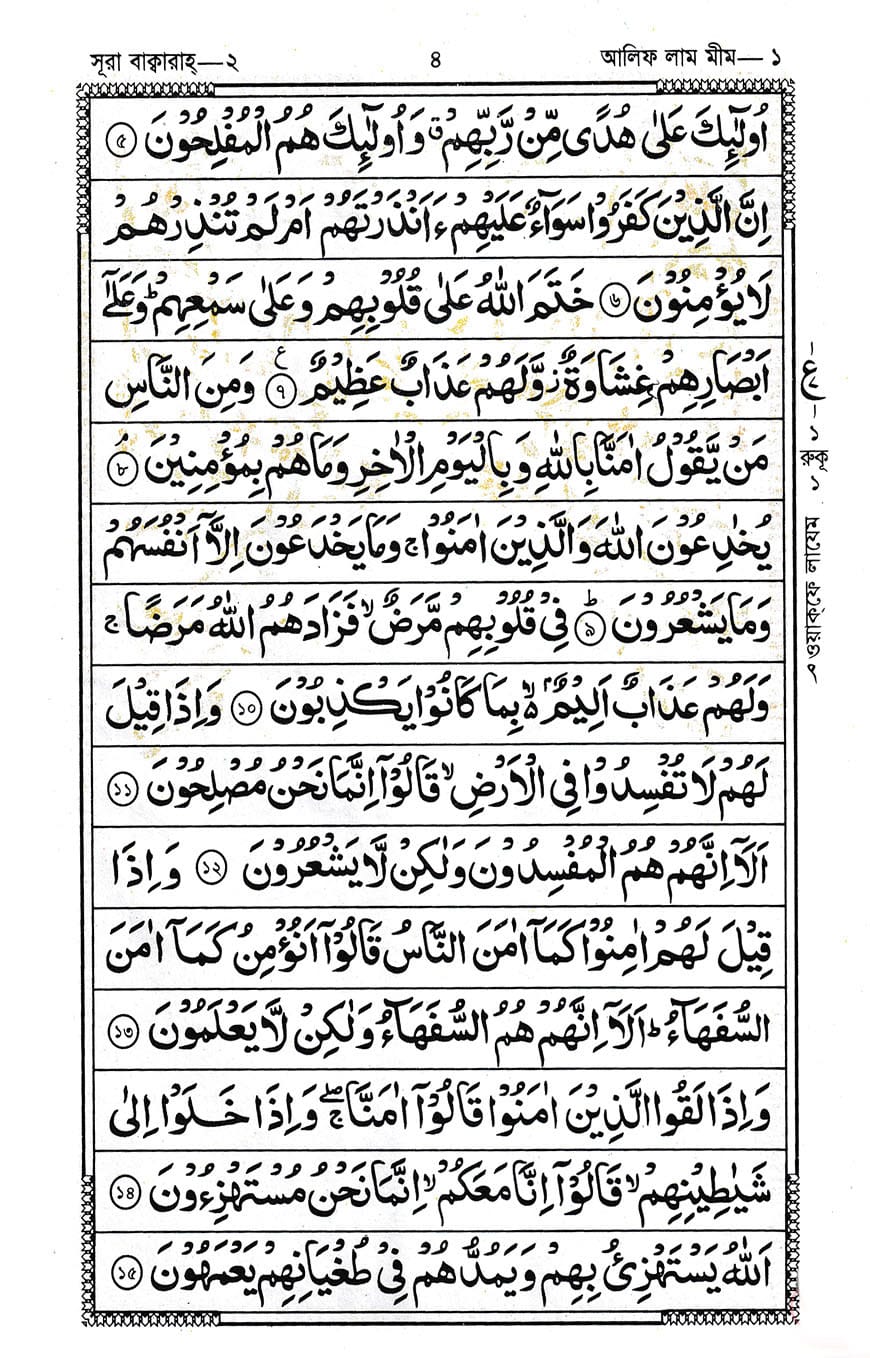 সূরা বাক্বারাহ্—২ ৪ আলিফ লাম মীম—১
اُولٰٓئِكَ عَلٰى هُدًى مِّنْ رَّبِّهِمْ ۗ وَاُولٰٓئِكَ هُمُ الْمُفْلِحُوْنَ ৫
اِنَّ الَّذِيْنَ كَفَرُوْا سَوَآءٌ عَلَيْهِمْ ءَاَنْذَرْتَهُمْ اَمْ لَمْ تُنْذِرْهُمْ
لَا يُؤْمِنُوْنَ ৬ خَتَمَ اللّٰهُ عَلٰى قُلُوْبِهِمْ وَعَلٰى سَمْعِهِمْ ؕ وَعَلٰٓى
اَبْصَارِهِمْ غِشَاوَةٌ ز وَّلَهُمْ عَذَابٌ عَظِيْمٌ ع ৭ وَمِنَ النَّاسِ
مَنْ يَّقُوْلُ اٰمَنَّا بِاللّٰهِ وَبِالْيَوْمِ الْاٰخِرِ وَمَا هُمْ بِمُؤْمِنِيْنَ ۘ ৮
يُخٰدِعُوْنَ اللّٰهَ وَالَّذِيْنَ اٰمَنُوْا ۚ وَمَا يَخْدَعُوْنَ اِلَّآ اَنْفُسَهُمْ
وَمَا يَشْعُرُوْنَ ؕ ৯ فِيْ قُلُوْبِهِمْ مَّرَضٌ ۙ فَزَادَهُمُ اللّٰهُ مَرَضًا ۚ
وَلَهُمْ عَذَابٌ اَلِيْمٌۢ ۙ بِمَا كَانُوْا يَكْذِبُوْنَ ১০ وَاِذَا قِيْلَ
لَهُمْ لَا تُفْسِدُوْا فِي الْاَرْضِ ۙ قَالُوْٓا اِنَّمَا نَحْنُ مُصْلِحُوْنَ ১১
اَلَآ اِنَّهُمْ هُمُ الْمُفْسِدُوْنَ وَلٰكِنْ لَّا يَشْعُرُوْنَ ১২ وَاِذَا
قِيْلَ لَهُمْ اٰمِنُوْا كَمَآ اٰمَنَ النَّاسُ قَالُوْٓا اَنُؤْمِنُ كَمَآ اٰمَنَ
السُّفَهَآءُ ؕ اَلَآ اِنَّهُمْ هُمُ السُّفَهَآءُ وَلٰكِنْ لَّا يَعْلَمُوْنَ ১৩
وَاِذَا لَقُوا الَّذِيْنَ اٰمَنُوْا قَالُوْٓا اٰمَنَّا ۚۖ وَاِذَا خَلَوْا اِلٰى
شَيٰطِيْنِهِمْ ۙ قَالُوْٓا اِنَّا مَعَكُمْ ۙ اِنَّمَا نَحْنُ مُسْتَهْزِءُوْنَ ১৪
اَللّٰهُ يَسْتَهْزِئُ بِهِمْ وَيَمُدُّهُمْ فِيْ طُغْيَانِهِمْ يَعْمَهُوْنَ ১৫
ع
রুকূ ১
ওয়াক্‌ফে লাযেম